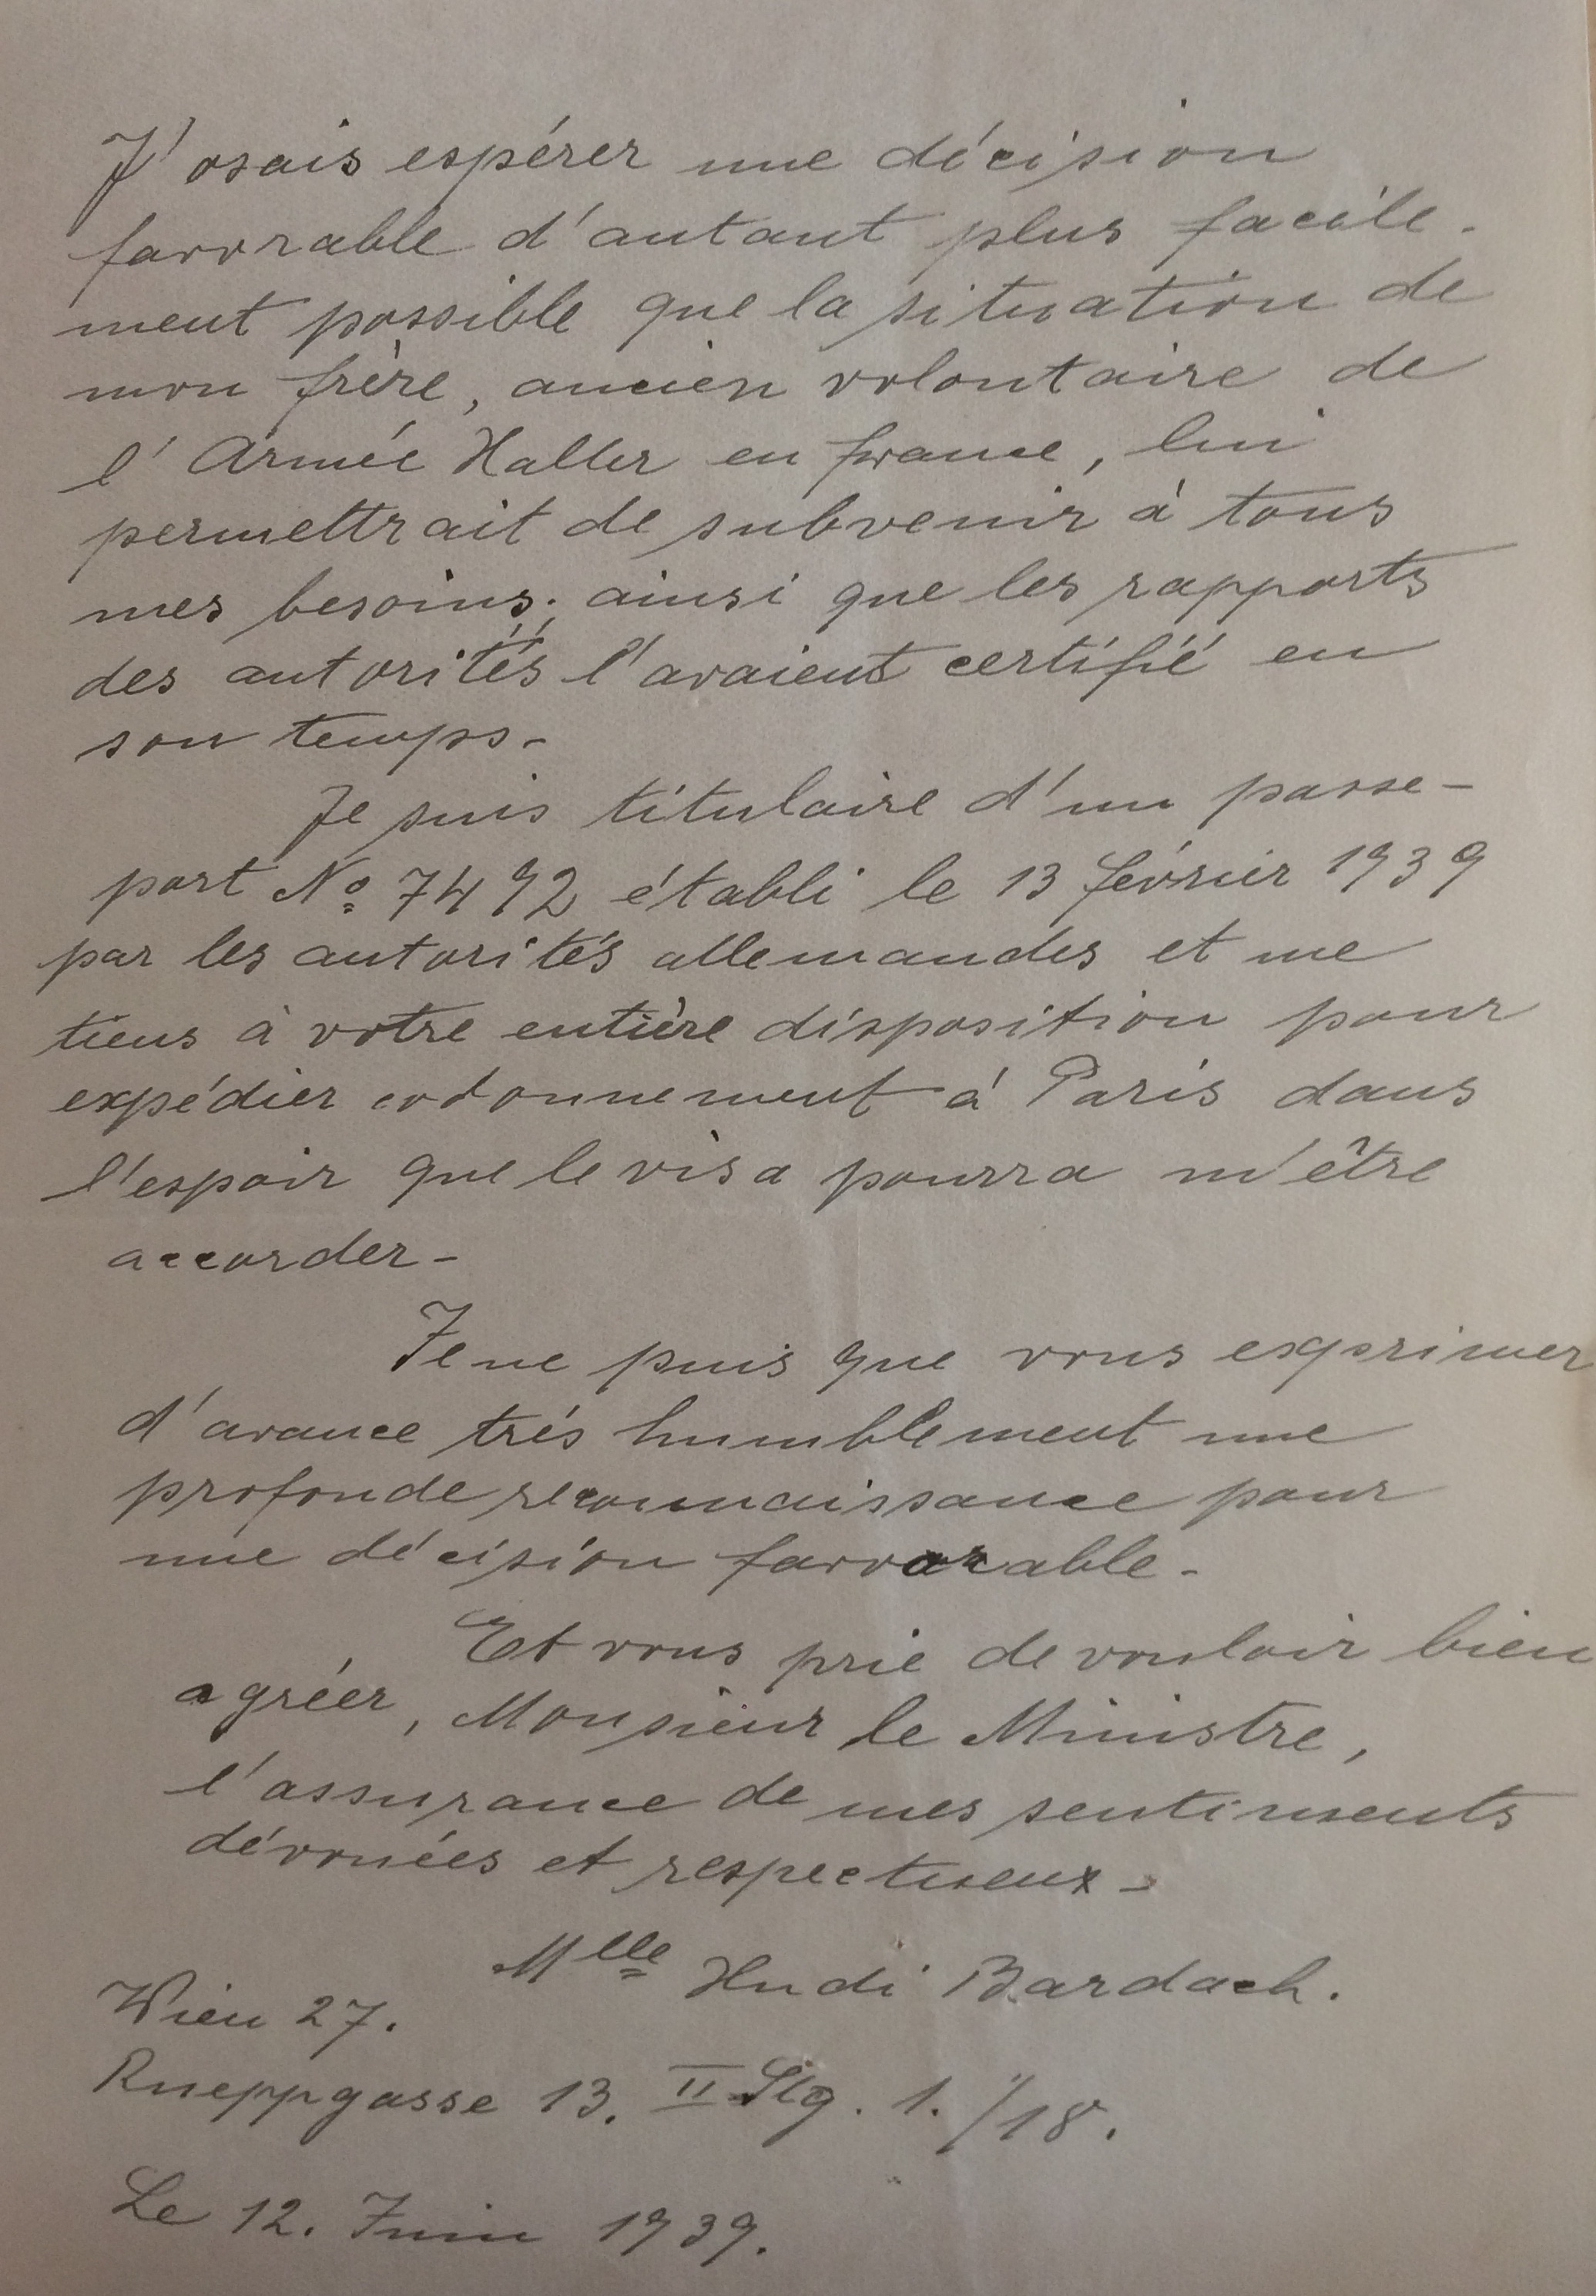 J'osais espérer une décision
favorable d'autant plus facile-
ment possible que la situation de
mon frère, ancien volontaire de
l'Armée Haller en france, lui
permettrait de subvenir à tous
mes besoins; ainsi que les rapports
des autorités l'avaient certifié en
son temps-
Je suis titulaire d'un passe-
port No 7492 établi le 13 février 1939
par les autorités allemandes et me
tiens à votre entière disposition pour
expédier à Paris dans
l'espoir que le visa pourra m'être
accorder-
Je ne puis que vous exprimer
d'avance trés humblement une
profonde reconnaissance pour
une décision favorable-
Et vous prie de vouloir bien
agréer, Monsieur le Ministre,
l'assurance de mes sentiments
dévouées et respectueux-
Mlle Hudi Bardach.
Wien 27.
Rueppgasse 13. II Stg. 1./18.
Le 12. Juin 1939.